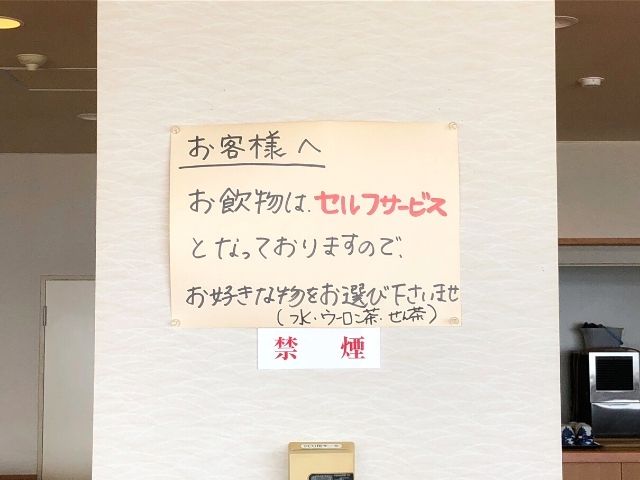 お客様へ
お飲物は、セルフサービス
となっておりますので、
お好きな物をお選び下さいませ
(水・ウーロン茶・せん茶)
禁煙